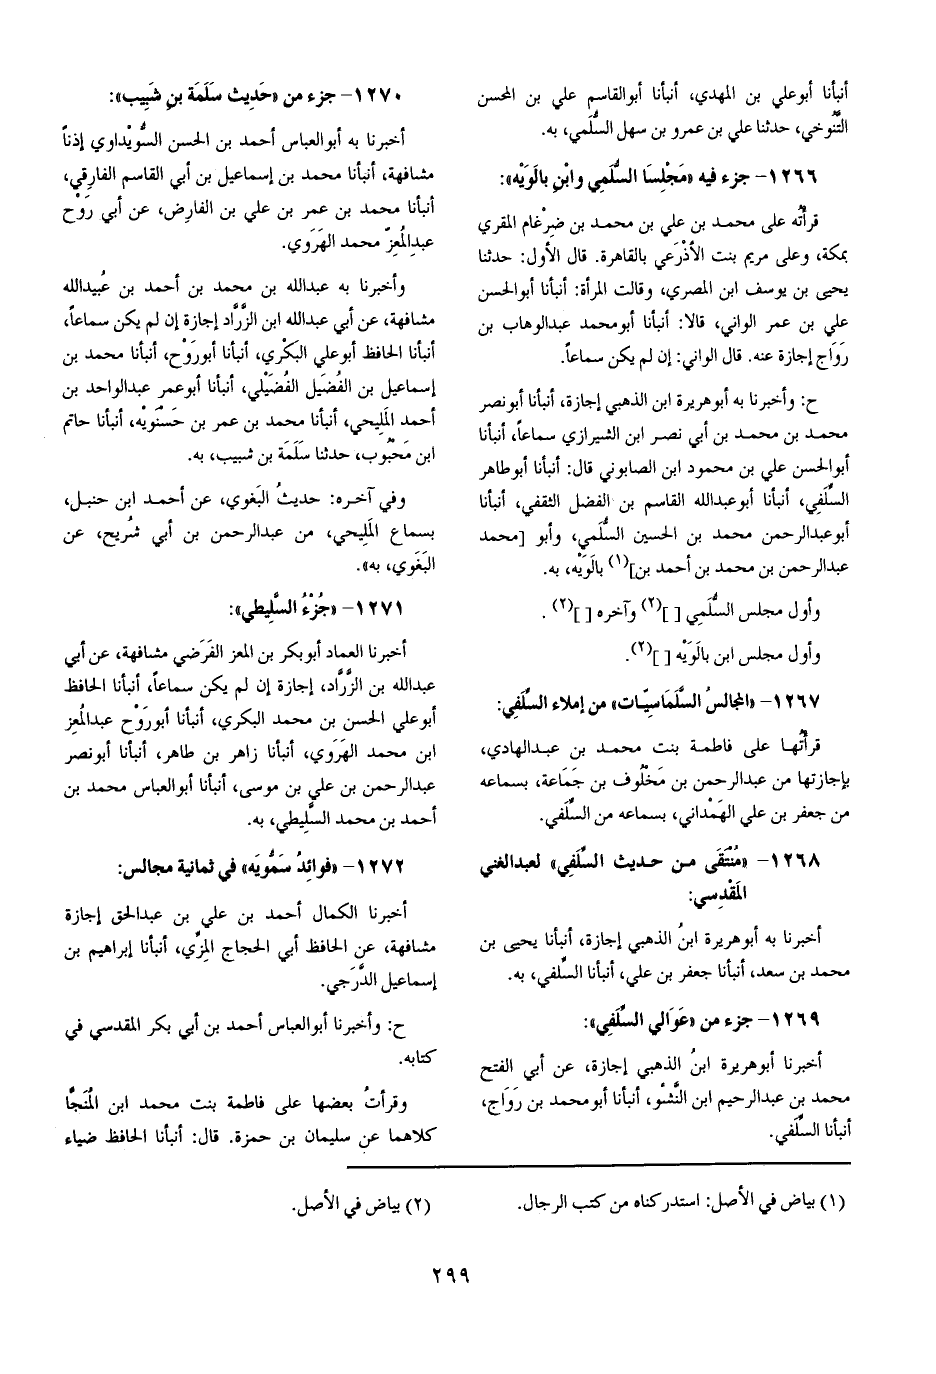 أنبأنا أبوعلي بن المهدي، أنبأنا أبوالقاسم علي بن المحسن
التَّنُوخي، حدثنا علي بن عمرو بن سهل السُّلَمي، به.
١٢٦٦- جزء فيه «مَجْلِسَا السُّلَمي وابْنِ بالَوَيْه»:
قرأتُه على محمد بن علي بن محمد بن ضِرْغام المقري
بمكة، وعلى مريم بنت الأذْرَعي بالقاهرة. قال الأول: حدثنا
يحيى بن يوسف ابن المصري، وقالت المرأة: أنبأنا أبوالحسن
علي بن عمر الواني، قالا: أنبأنا أبومحمد عبدالوهاب بن
رَوَاج إجازة عنه. قال الواني: إن لم يكن سماعاً.
ح: وأخبرنا به أبوهريرة ابن الذهبي إجازة، أنبأنا أبونصر
محمد بن محمد بن أبي نصر ابن الشيرازي سماعاً، أنبأنا
أبوالحسن علي بن محمود ابن الصابوني قال: أنبأنا أبوطاهر
السِّلَفي، أنبأنا أبوعبدالله القاسم بن الفضل الثقفي، أنبأنا
أبوعبدالرحمن محمد بن الحسين السُّلَمي، وأبو [محمد
عبدالرحمن بن محمد بن أحمد بن](١) بالَوَيْه، به.
وأول مجلس السُّلَمي [ ](٢) وآخره [ ](٢) .
وأول مجلس ابن بالَوَيْه [ ](٢).
١٢٦٧- «المجالسُ السَّلَمَاسِيّات» من إملاء السِّلَفي:
قرأتُها على فاطمة بنت محمد بن عبدالهادي،
بإجازتها من عبدالرحمن بن مَخْلُوف بن جَمَاعة، بسماعه
من جعفر بن علي الهَمْداني، بسماعه من السِّلَفي.
١٢٦٨- «مُنْتَقَى من حديث السِّلَفي» لعبدالغني
المَقْدِسي:
أخبرنا به أبوهريرة ابنُ الذهبي إجازة، أنبأنا يحيى بن
محمد بن سعد، أنبأنا جعفر بن علي، أنبأنا السِّلفي، به.
١٢٦٩- جزء من «عَوَالي السِّلَفي»:
أخبرنا أبوهريرة ابنُ الذهبي إجازة، عن أبي الفتح
محمد بن عبدالرحيم ابن النَّشْو، أنبأنا أبومحمد بن رَوَاج،
أنبأنا السِّلَفي.
١٢٧٠- جزء من «حَدِيث سَلَمَة بنِ شَبِيب»:
أخبرنا به أبوالعباس أحمد بن الحسن السُّوَيْداوي إذناً
مشافهة، أنبأنا محمد بن إسماعيل بن أبي القاسم الفارِقي،
أنبأنا محمد بن عمر بن علي بن الفارِض، عن أبي رَوْح
عبدالمُعِزّ محمد الهَرَوي.
وأخبرنا به عبدالله بن محمد بن أحمد بن عُبيدالله
مشافهة، عن أبي عبدالله ابن الزَّرَّاد إجازة إن لم يكن سماعاً،
أنبأنا الحافظ أبوعلي البَكْري، أنبأنا أبورَوْح، أنبأنا محمد بن
إسماعيل بن الفُضَيل الفُضَيْلي، أنبأنا أبوعمر عبدالواحد بن
أحمد المَلِيحي، أنبأنا محمد بن عمر بن حَسْنَوَيْه، أنبأنا حاتم
ابن مَحْبُوب، حدثنا سَلَمَة بن شبيب، به.
وفي آخره: حديثُ البَغوي، عن أحمد ابن حنبل،
بسماع المَلِيحي، من عبدالرحمن بن أبي شُريح، عن
البَغَوي، به».
١٢٧١- «جُزْءُ السَّلِيطي»:
أخبرنا العماد أبوبكر بن المعز الفَرَضي مشافهة، عن أبي
عبدالله بن الزَّرَّاد، إجازة إن لم يكن سماعاً، أنبأنا الحافظ
أبوعلي الحسن بن محمد البكري، أنبأنا أبورَوْح عبدالمُعِز
ابن محمد الهَرَوي، أنبأنا زاهر بن طاهر، أنبأنا أبونصر
عبدالرحمن بن علي بن موسى، أنبأنا أبوالعباس محمد بن
أحمد بن محمد السَّلِيطي، به.
١٢٧٢- «فوائدُ سَمُّويَه» في ثمانية مجالس:
أخبرنا الكمال أحمد بن علي بن عبدالحق إجازة
مشافهة، عن الحافظ أبي الحجاج المِزِّي، أنبأنا إبراهيم بن
إسماعيل الدَّرَجي.
ح: وأخبرنا أبوالعباس أحمد بن أبي بكر المقدسي في
كتابه.
وقرأتُ بعضها على فاطمة بنت محمد ابن المُنَجَّا
كلاهما عن سليمان بن حمزة. قال: أنبأنا الحافظ ضياء
(١) بياض في الأصل: استدركناه من كتب الرجال.
(٢) بياض في الأصل.
٢٩٩